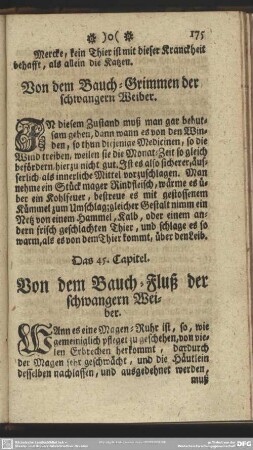 )o( 175
Mercke, kein Thier ist mit dieser Kranckheit
behafft, als allein die Katzen.
Von dem Bauch-Grimmen der
schwangern Weiber.
IN diesem Zustand muß man gar behut-
sam gehen, dann wann es von den Win-
den, so thun diejenige Medicinen, so die
Wind treiben, weilen sie die Monat-Zeit so gleich
befördern, hierzu nicht gut. Ist es also sicherer, äus-
serlich als innerliche Mittel vorzuschlagen. Man
nehme ein Stück mager Rindfleisch, wärme es ü-
ber ein Kohlfeuer, bestreue es mit gestossenem
Kümmel zum Umschlag; gleicher Gestalt nimm ein
Netz von einem Hammel, Kalb, oder einem an-
dern frisch geschlachten Thier, und schlage es so
warm, als es von dem Thier kommt, über den Leib.
Das 45. Capitel.
Von dem Bauch-Fluß der
schwangern Wei-
ber.
WAnn es eine Magen-Ruhr ist, so, wie
gemeiniglich pfleget zu geschehen, von vie-
len Erbrechen herkommt, dardurch
der Magen sehr geschwächt, und die Häutlein
desselben nachlassen, und ausgedehnet werden,
muß